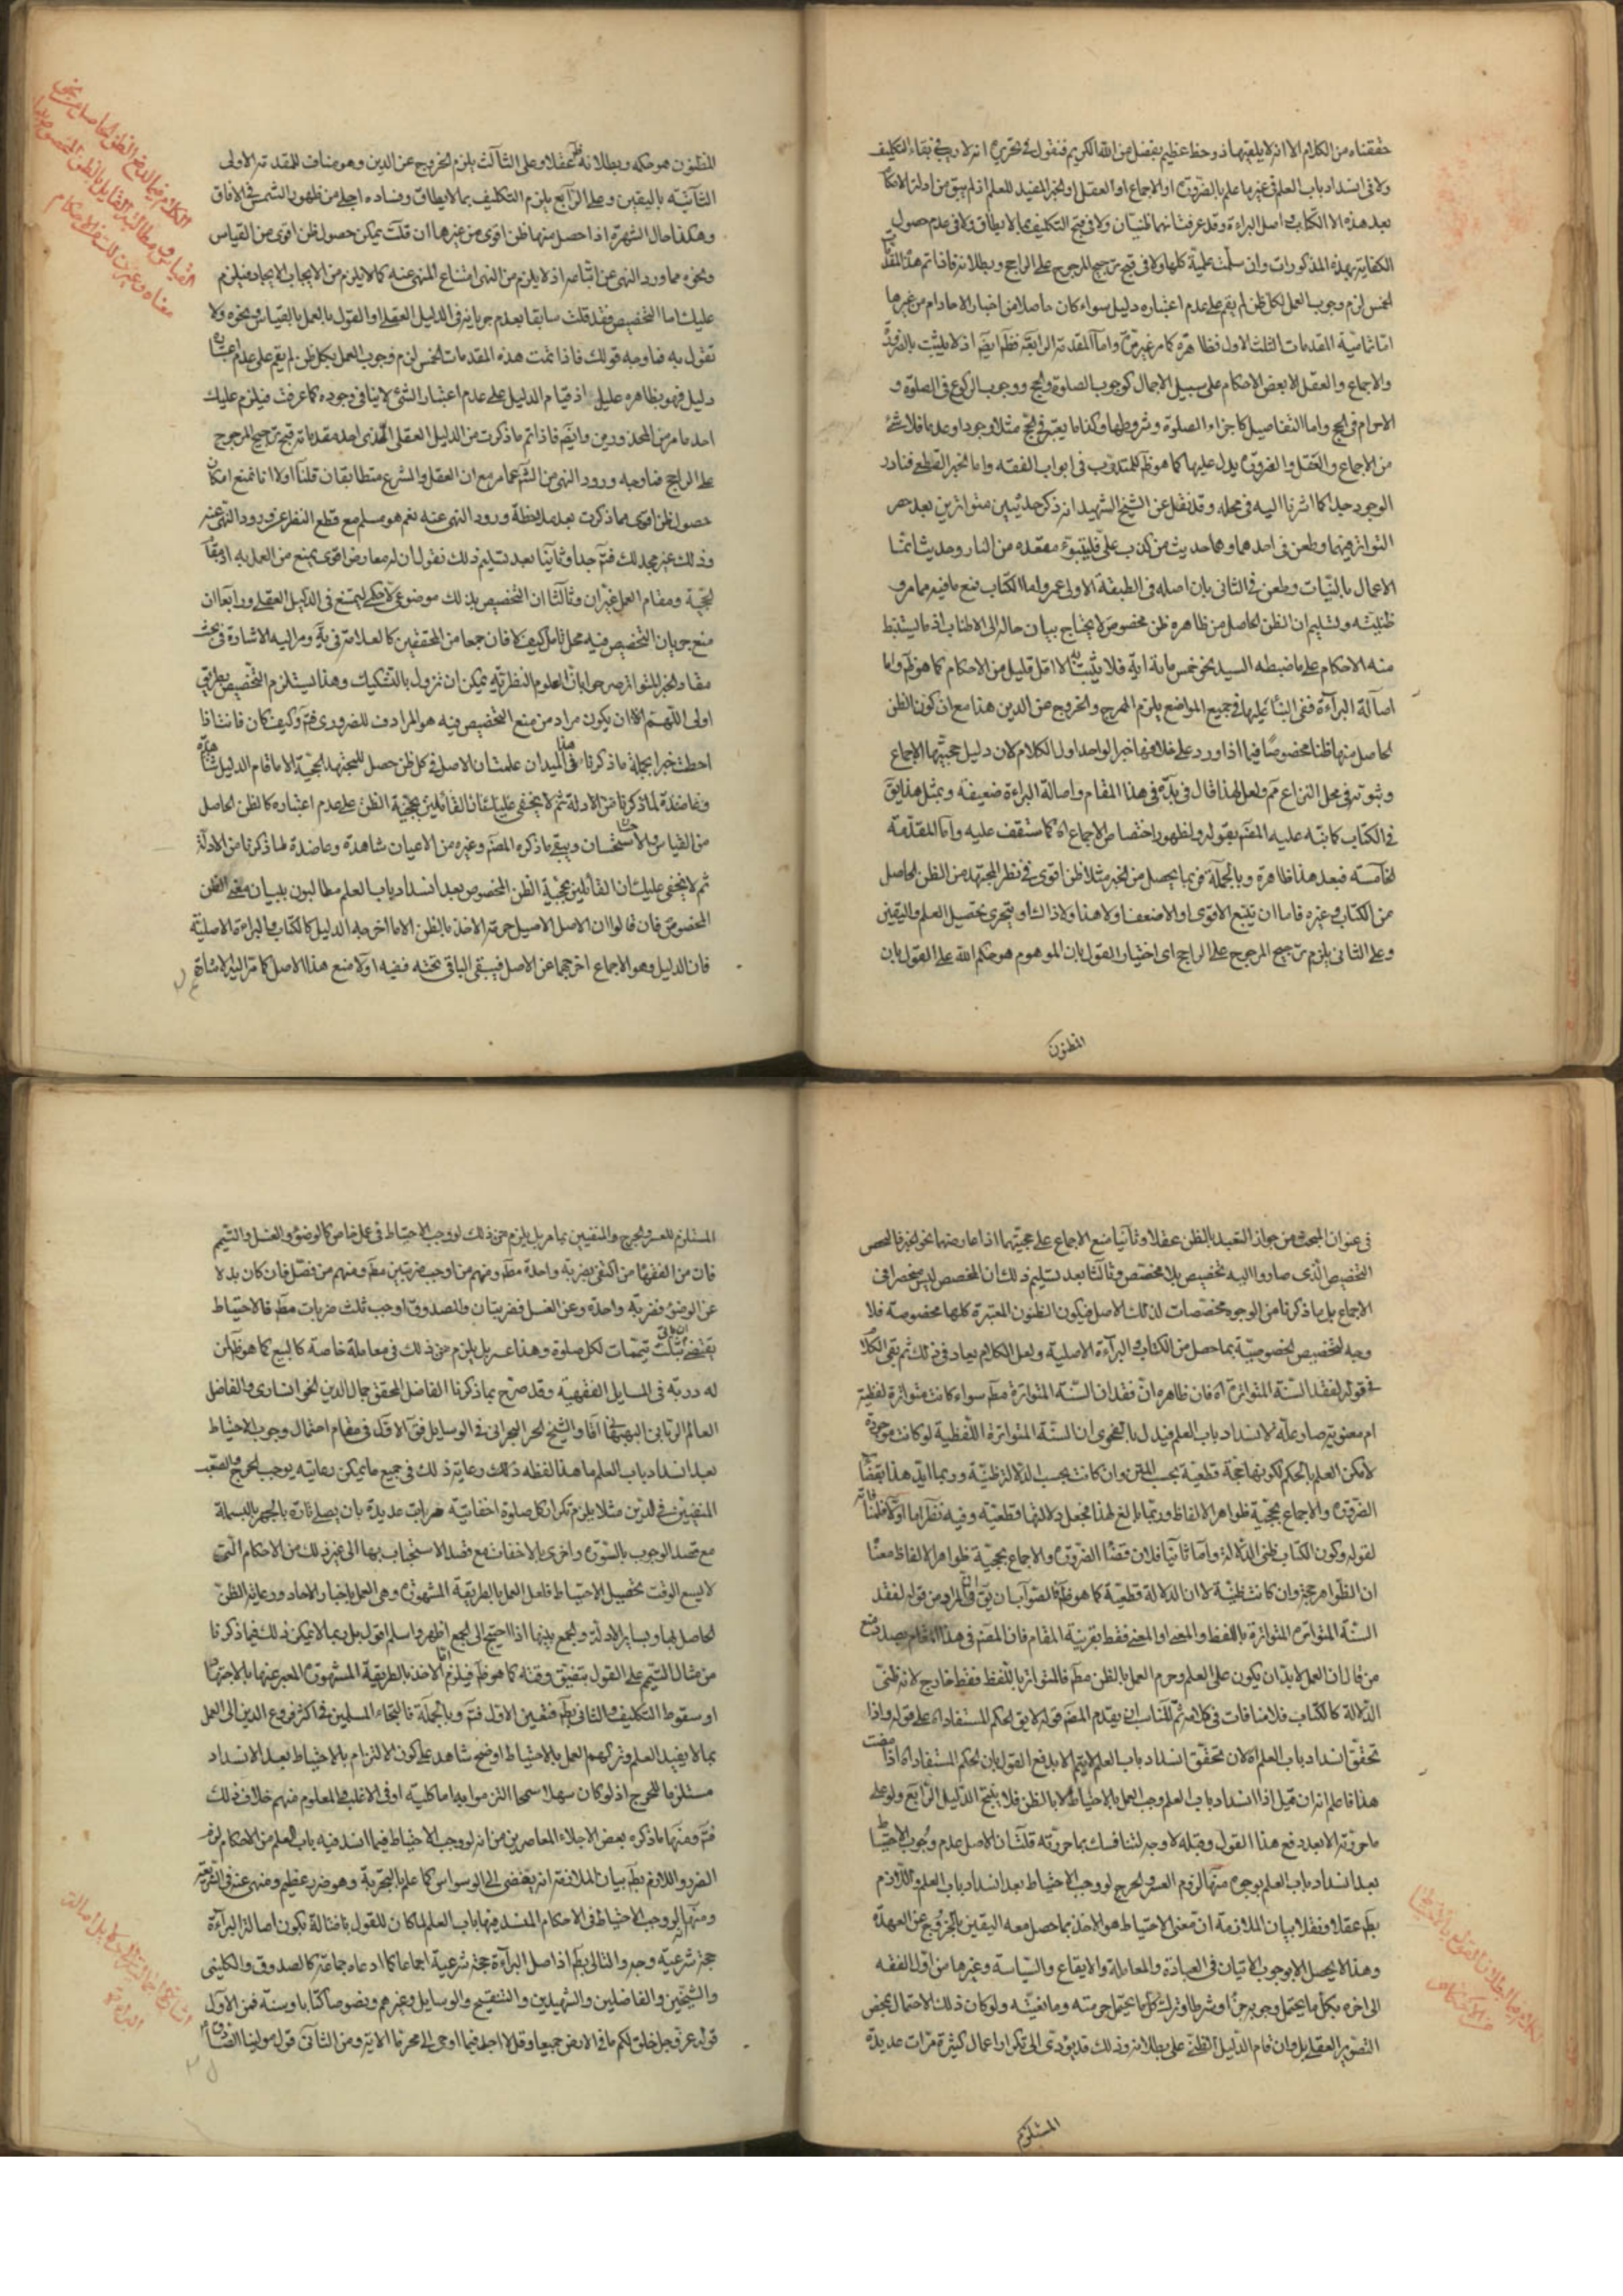 حققناه من الكلام الا انه لا يلقيها الا ذو حظ عظيم بفضل من الله الكريم فنقول في تحريره انه لا ريب في بقاء التكليف
ولا في انسداد باب العلم في غير ما علم بالضرورة او الاجماع او العقل او الخبر المفيد للعلم اذ لم يبق من ادلة الاحكام
بعد هذه الا الكتاب واصل البراءة وقد عرفت انهما ظنيتان ولا في قبح التكليف بما لا يطاق ولا في عدم حصول
الكفاية بهذه المذكورات وان سلمت علمية كلها ولا في قبح ترجيح المرجوح على الراجح وبطلانه فاذا تم هذه المقدمات
الخمس لزم وجوب العمل بكل ظن لم يقم على عدم اعتباره دليل سواء كان حاصلا من اخبار الاحاد ام من غيرها
اما تمامية المقدمات الثلث الاول فظاهرة كما مر غير مرة واما المقدمة الرابعة فظم ايضم اذ لا يثبت بالضرورة
والاجماع والعقل الا بعض الاحكام على سبيل الاجمال كوجوب الصلوة والحج ووجوب الركوع في الصلوة و
الاحرام في الحج واما التفاصيل كاجزاء الصلوة وشروطها وكذا ما يعتبر في الحج مثلا وجودا وعدما فلا شئ
من الاجماع والعقل والضرورة يدل عليها كما هو ظم للمتدرب في ابواب الفقه واما الخبر القطعي فنادر
الوجود جدا كما اشرنا اليه في محله وقد نقل عن الشيخ الشهيد انه ذكر حديثين متواترين بعد حصر
التواتر فيهما وطعن في احدهما وهما حديث من كذب علي فليتبوء مقعده من النار وحديث انما
الاعمال بالنيات وطعن في الثاني بان اصله في الطبقة الاولى عمر واما الكتاب فمع ما فيه مما مر في
ظنيته وتسليم ان الظن الحاصل من ظاهره ظن مخصوص لا يحتاج بيان حاله الى الاطناب اذ ما يستنبط
منه الاحكام على ما ضبطه السيد نحو خمس مائة اية فلا يثبت به الا اقل قليل من الاحكام كما هو ظم واما
اصالة البراءة ففي البناء عليها في جميع المواضع يلزم الهرج والخروج عن الدين هذا مع ان كون الظن
الحاصل منها ظنا مخصوصا فيما اذا ورد على خلافها خبر الواحد اول الكلام لان دليل حجيتها الاجماع
وثبوته في محل النزاع مم ولعل لهذا قال في هذا المقام واصالة البراءة ضعيفة وبمثل هذا يق
في الكتاب كما نبه عليه المصنم بقوله ولظهور اختصاص الاجماع اه كما ستقف عليه واما المقدمة
الخامسة فبعد هذا ظاهرة وبالجملة فربما يحصل من الخبر مثلا ظن اقوى في نظر المجتهد من الظن الحاصل
من الكتاب وغيره فاما ان يتبع الاقوى او الاضعف او لا هذا ولا ذاك او يتحرى تحصيل العلم واليقين
وعلى الثاني يلزم ترجيح المرجوح على الراجح اى اختيار القول بان الموهوم هو حكم الله على القول بان
المظنون
المظنون هو حكمه وبطلانه ظم عقلا وعلى الثالث يلزم الخروج عن الدين وهو مناف للمقدمة الاولى
الثانية باليقين وعلى الرابع يلزم التكليف بما لا يطاق وفساده اجلى من ظهور الشمس في الافاق
وهكذا حال الشهرة اذا حصل منها ظن اقوى من غيرها ان قلت يمكن حصول ظن اقوى من القياس
ونحوه مما ورد النهى عن اتباعه اذ لا يلزم من النهى امتناع المنهى عنه كما لا يلزم من الايجاب الايجاد فيلزم
عليك اما التخصيص فقد قلت سابقا بعدم جريانه في الدليل العقلي او القول بالعمل بالقياس ونحوه ولا
تقول به فما وجه قولك فاذا تمت هذه المقدمات الخمس لزم وجوب العمل بكل ظن لم يقم على عدم اعتباره
دليل فهو بظاهره عليل اذ قيام الدليل على عدم اعتبار الشئ لا ينافي وجوده كما عرفت فيلزم عليك
احد ما مر من المحذورين وايضم فاذا تم ما ذكرت من الدليل العقلي الذي احد مقدماته قبح ترجيح المرجوح
على الراجح فما وجه ورود النهى من الشم عما مر مع ان العقل والشرع متطابقان قلنا اولا انا نمنع امكان
حصول ظن اقوى مما ذكرت بعد ملاحظة ورود النهى عنه نعم هو مسلم مع قطع النظر عن ورود النهى عنه
وذلك غير مجد لك فتم جدا وثانيا بعد تسليم ذلك نقول ان له معارض اقوى يمنع من العمل به اذ مقام
الحجية ومقام العمل غيران وثالثا ان التخصيص بذلك موضوعي لا حكمي ليمتنع في الدليل العقلي ورابعا ان
منع جريان التخصيص فيه محل تامل كيف لا فان جمعا من المحققين كالعلامة في يه ومر اليه الاشارة في بحث
مفاد الخبر المتواتر صرحوا بان العلوم النظرية يمكن ان تزول بالتشكيك وهذا يستلزم التخصيص بطريق
اولى اللهم الا ان يكون مراد من منع التخصيص فيه هو المرادف للضروري فتم وكيف كان فانت اذا
احطت خبرا بجملة ما ذكرناه في الميدان علمت ان الاصل في كل ظن حصل للمجتهد الحجية الا ما قام الدليل
ومعاضدة لما ذكرنا من الادلة ثم لا يخفى عليك ان القائلين بحجية الظن على عدم اعتباره كالظن الحاصل
من القياس والاستحسان ويبقى ما ذكره المصنم وغيره من الاعيان شاهدة وعاضدة لما ذكرنا من الادلة
ثم لا يخفى عليك ان القائلين بحجية الظن المخصوص بعد انسداد باب العلم مطالبون ببيان معنى الظن
المخصوص فان قالوا ان الاصل الاصيل حرمة الاخذ بالظن الا ما اخرجه الدليل كالكتاب والبراءة الاصلية
فان الدليل وهو الاجماع اخرجهما عن الاصل فيبقى الباقي تحته ففيه اولا منع هذا الاصل كما مر اليه الاشارة
في عنوان المبحث من جواز التعبد بالظن عقلا وثانيا منع الاجماع على حجيتهما اذا عارضهما نحو الخبر فالمخصص
التخصيص الذي صاروا اليه تخصيص بلا مخصص وثالثا بعد تسليم ذلك ان المخصص ليس منحصرا في
الاجماع بل ما ذكرنا من الوجوه مخصصات لذلك الاصل فيكون الظنون المعتبرة كلها مخصوصة فلا
وجه لتخصيص الخصوصية بما حصل من الكتاب والبراءة الاصلية ولعل الكلام يعاد في ذلك ثم بقى الكلام
في قوله لفقد السنة المتواترة اه فان ظاهره ان فقدان السنة المتواترة مطم سواء كانت متواترة لفظية
ام معنوية صار علة لانسداد باب العلم فيدل بالفحوى ان السنة المتواترة اللفظية لو كانت موجودة
لامكن العلم بالحكم لكونها حجة قطعية بحسب المتن وان كانت بحسب الدلالة ظنية وربما ايد هذا بقضاء
الضرورة والاجماع بحجية ظواهر الالفاظ وربما بالغ لهذا فجعل دلالتها قطعية وفيه نظر اما اولا فلمنافاته
لقوله وكون الكتاب ظني الدلالة واما ثانيا فلان قضاء الضرورة والاجماع بحجية ظواهر الالفاظ معناه
ان الظواهر حجة وان كانت ظنية لا ان الدلالة قطعية كما هو ظم فالصواب ان يق ان المراد من قوله لفقد
السنة المتواترة المتواترة باللفظ والمعنى او المعنى فقط بقرينة المقام فان المصنم في هذا المقام بصدد منع
من قال ان العمل لا بد ان يكون على العلم وحرم العمل بالظن مطم فالمتواتر باللفظ فقط خارج لانه ظني
الدلالة كالكتاب فلا منافات في كلامه ثم المناسب ان يقدم المصنم قوله لا يق الحكم المستفاد اه على قوله واذا
تحقق انسداد باب العلم اه لان تحقق انسداد باب العلم لا يتم الا بدفع القول بان الحكم المستفاد اه اذا عرفت
هذا فاعلم انه ان قيل اذا انسداد باب العلم وجب العمل بالاحتياط لا بالظن فلا ينتج الدليل الرابع ولو على
ما حررته الا بعد دفع هذا القول وقبله لا وجه لتنافسك بما حررته قلت ان الاصل عدم وجوب الاحتياط
بعد انسداد باب العلم بوجوه منها لزوم العسر والحرج لو وجب الاحتياط بعد انسداد باب العلم واللازم
بطم عقلا ونقلا بيان الملازمة ان معنى الاحتياط هو الاخذ بما حصل معه اليقين بالخروج عن العهدة
وهذا لا يحصل الا بوجوب الاتيان في العبادة والمعاملة والايقاع والسياسة وغيرها من اول الفقه
الى اخره بكل ما يحتمل وجوبه جزا وشرطا وترك كل ما يحتمل حرمته ومانعيته ولو كان ذلك الاحتمال بمحض
التصوير العقلي بل وان قام الدليل الظني على بطلانه وذلك قد يؤدى الى تكرار اعمال كثيرة مرات عديدة
المستلزم
المستلزم للعسر والحرج والمنفيين بما مر بل يلزم من ذلك لو وجب الاحتياط في عمل خاص كالوضوء والغسل والتيمم
فان من الفقهاء من اكتفى بضربة واحدة مطم ومنهم من اوجب ضربتين مطم ومنهم من فصل فان كان بدلا
عن الوضوء فضربة واحدة وعن الغسل فضربتان والصدوق اوجب ثلث ضربات مطم فالاحتياط
يقتضي ان ياتي بثلث تيممات لكل صلوة وهذا عسر بل يلزم من ذلك في معاملة خاصة كالبيع كما هو ظم لمن
له دربة في المسايل الفقهية وقد صرح بما ذكرنا الفاضل المحقق جمال الدين الخوانساري والفاضل
العالم الرباني البهبهاني اقا والشيخ الحر البحراني في الوسايل فق الاول في مقام احتمال وجوب الاحتياط
بعد انسداد باب العلم ما هذا لفظه ذلك رعاية ذلك في جميع ما يمكن رعايته يوجب الحرج والصعب
المنفيين في الدين مثلا يلزم تكرار كل صلوة اخفاتية مرات عديدة بان يصلى تارة بالجهر بالبسملة
مع قصد الوجوب بالسورة واخرى بالاخفات مع قصد الاستحباب بها الى غير ذلك من الاحكام التي
لا يسع الوقت تحصيل الاحتياط فلعل العمل بالطريقة المشهورة وهى العمل باخبار الاحاد ورعاية الظن
الحاصل بها وبساير الادلة والجمع بينها اذا احتيج الى الجمع اظهر واسلم اقول بل ربما لا يمكن ذلك فيما ذكرنا
من مثال التيمم على القول بتضيق وقته كما هو ظم فيلزم اما الاخذ بالطريقة المشهورة المعبر عنها بالاجتهاد
او سقوط التكليف والثاني بطم فتعين الاول فتم وبالجملة فالتجاء المسلمين في اكثر فروع الدين الى العمل
بما لا يفيد العلم وتركهم العمل بالاحتياط اوضح شاهد على كون الالتزام بالاحتياط بعد الانسداد
مستلزما للحرج اذ لو كان سهلا سمحا التزموا به اما كلية او في الاغلب والمعلوم منهم خلاف ذلك
فتم ومنها ما ذكره بعض الاجلاء المعاصرين من انه لو وجب الاحتياط فيما انسد فيه باب العلم من الاحكام لزم
الضرر واللازم بطم بيان الملازمة انه يقتضى الى الوسواس كما علم بالتجربة وهو ضرر عظيم ومنهى عنه في الشريعة
ومنها انه لو وجب الاحتياط في الاحكام المنسد فيها باب العلم لما كان للقول باصالة بكون اصالة البراءة
حجة شرعية وجه والتالى بطم اذ اصل البراءة حجة شرعية اجماعا كما ادعاه جماعة كالصدوق والكليني
والشيخين والفاضلين والشهيدين والتنقيح والوسايل وغيرهم ونصوصا كتابا وسنة فمن الاول
قوله عز وجل خلق لكم ما في الارض جميعا وقل لا اجد فيما اوحى الى محرما الاية ومن الثاني قول مولينا الصادق